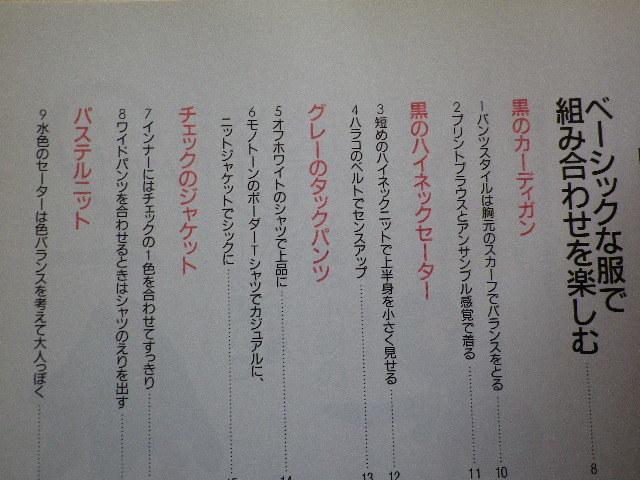 ベーシックな服で
組み合わせを楽しむ……8
黒のカーディガン
1 パンツスタイルは胸元のスカーフでバランスをとる……10
2 プリントブラウスとアンサンブル感覚で着る……11
黒のハイネックセーター
3 短めのハイネックニットで上半身を小さく見せる……12
4 ハラコのベルトでセンスアップ……13
グレーのタックパンツ
5 オフホワイトのシャツで上品に……14
6 モノトーンのボーダーTシャツでカジュアルに、
ニットジャケットでシックに……15
チェックのジャケット
7 インナーにはチェックの1色を合わせてすっきり……
8 ワイドパンツを合わせるときはシャツのえりを出す……
パステルニット
9 水色のセーターは色バランスを考えて大人っぽく……